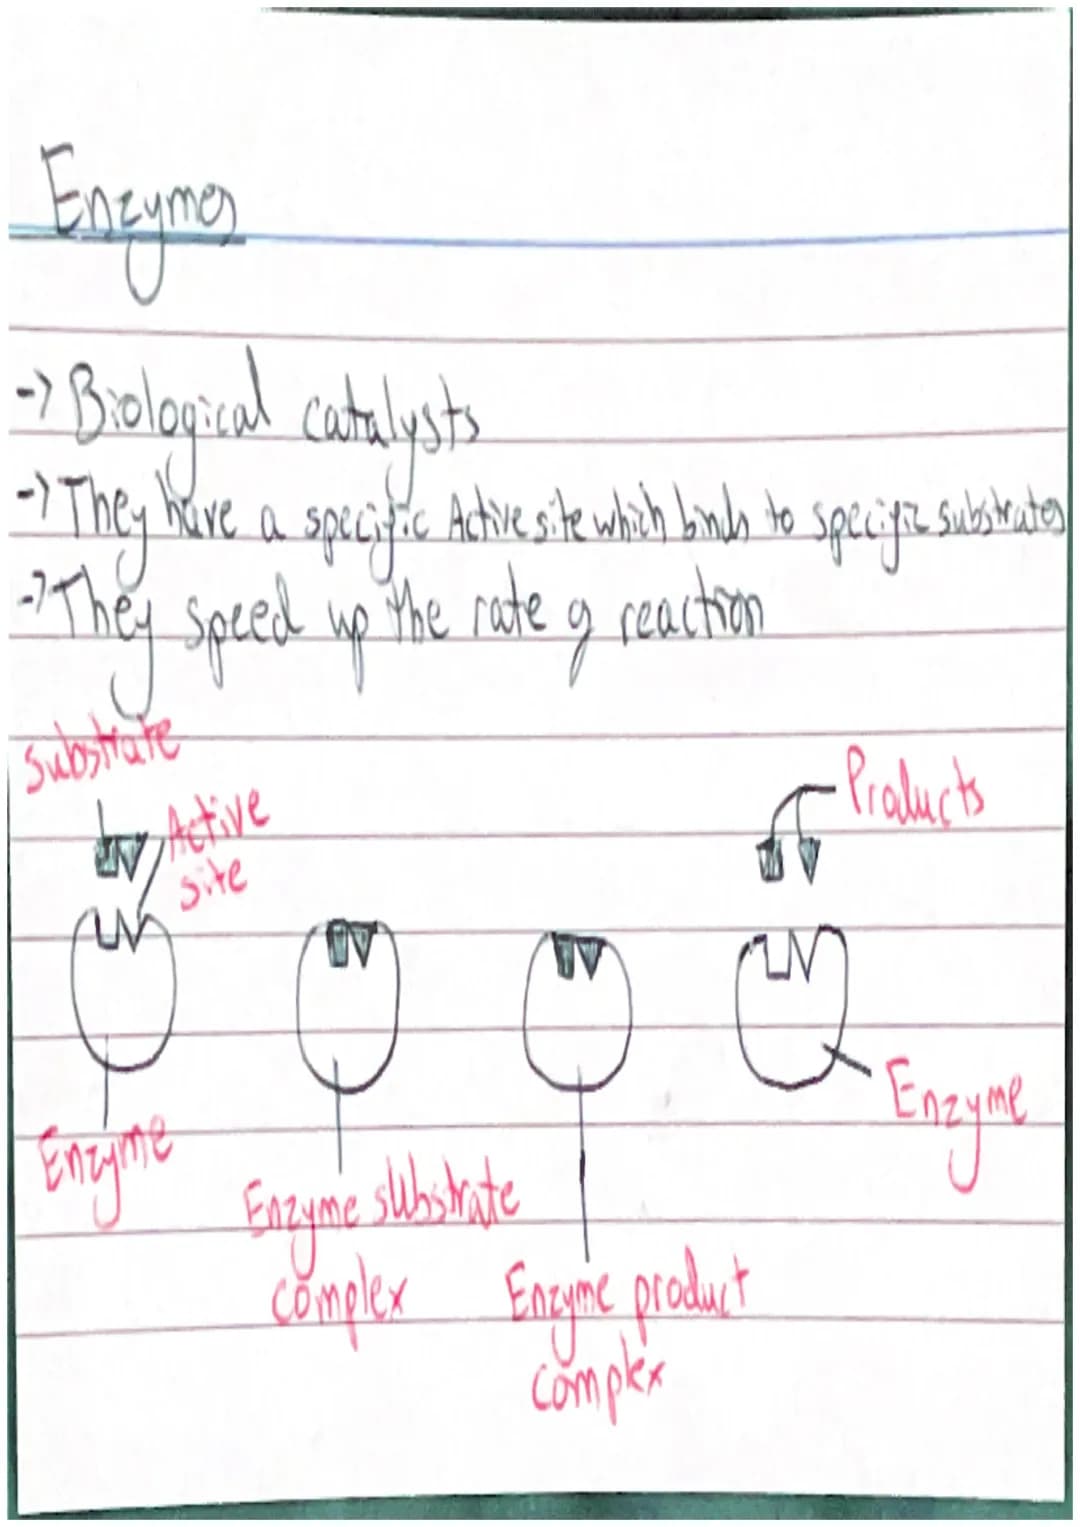 Enzymes
-> Biological catalysts
-> They have a specific Active site which binds to specific substrates
-> They speed up the rate of reaction
substrate
Active
site
Products
Enzyme
Enzyme substrate
complex
Enzyme product
complex
Enzyme